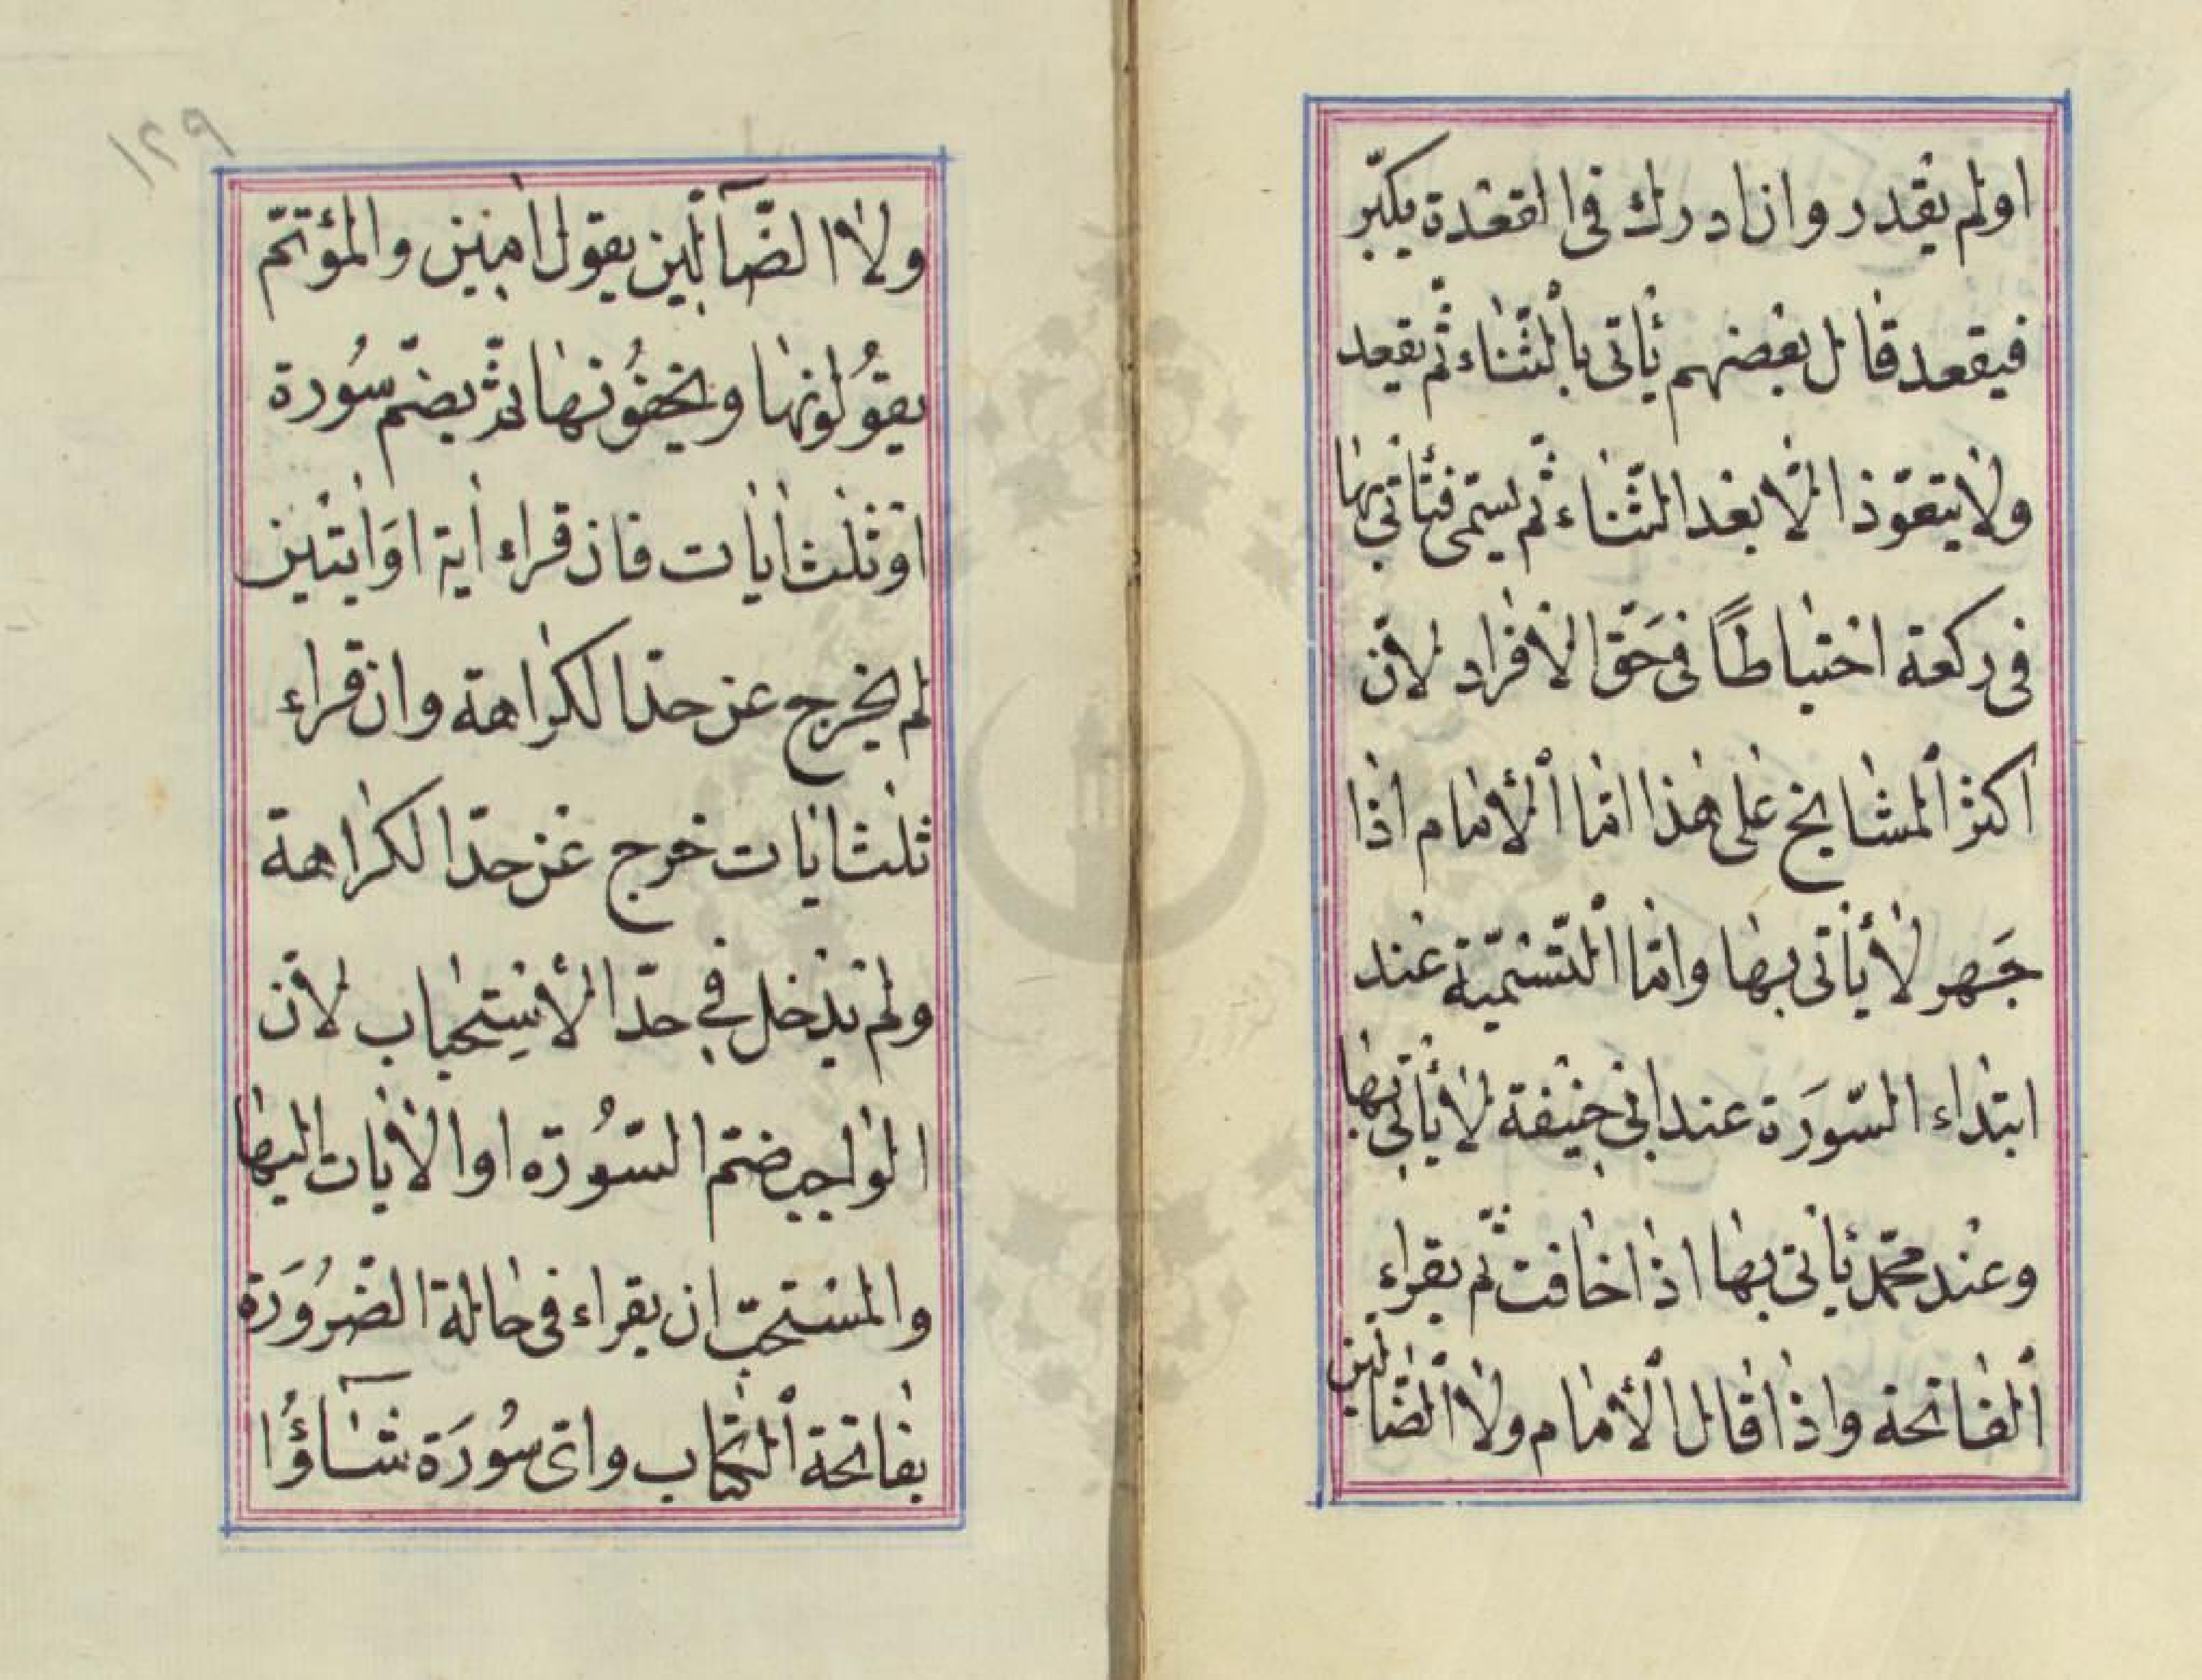 اولم يقدر وان ادرك في القعدة يكبّر
فيقعد قال بعضهم يأتى بالثّناء ثمّ يقعد
ولا يتعوّذ الّا بعد الثّناء ثم يسمّى فيأتى بها
فى ركعة احتياطًا فى حَقّ الافراد لانّ
اكثر المشايخ على هذا امّا الأمام اذا
جَهر لا يأتى بها وامّا التّسميّة عند
ابتداء السّورَة عند ابى حنيفة لا يأتى بها
وعند محمّد يأتى بها اذا خافت ثمّ يقراء
الفاتحة واذا قال الأمام ولا الضّالين
ولا الضّآلّين يقول امين والمؤتمّ
يقوُلونها ويخفوُنها ثمّ يضمّ سُورة
اوثلث ايات فان قراء اية اوَايتين
لم يخرج عن حدّ الكراهة وان قراء
ثلث ايات خرج عن حدّ الكراهة
ولم يدخل في حدّ الأستحباب لانّ
الواجب ضمّ السّوُرة او الايات اليها
والمستحبّ ان يقراء فى حالة الضّرُورَة
بفاتحة الكتاب واى سُورَة شآؤُا
١٢٩